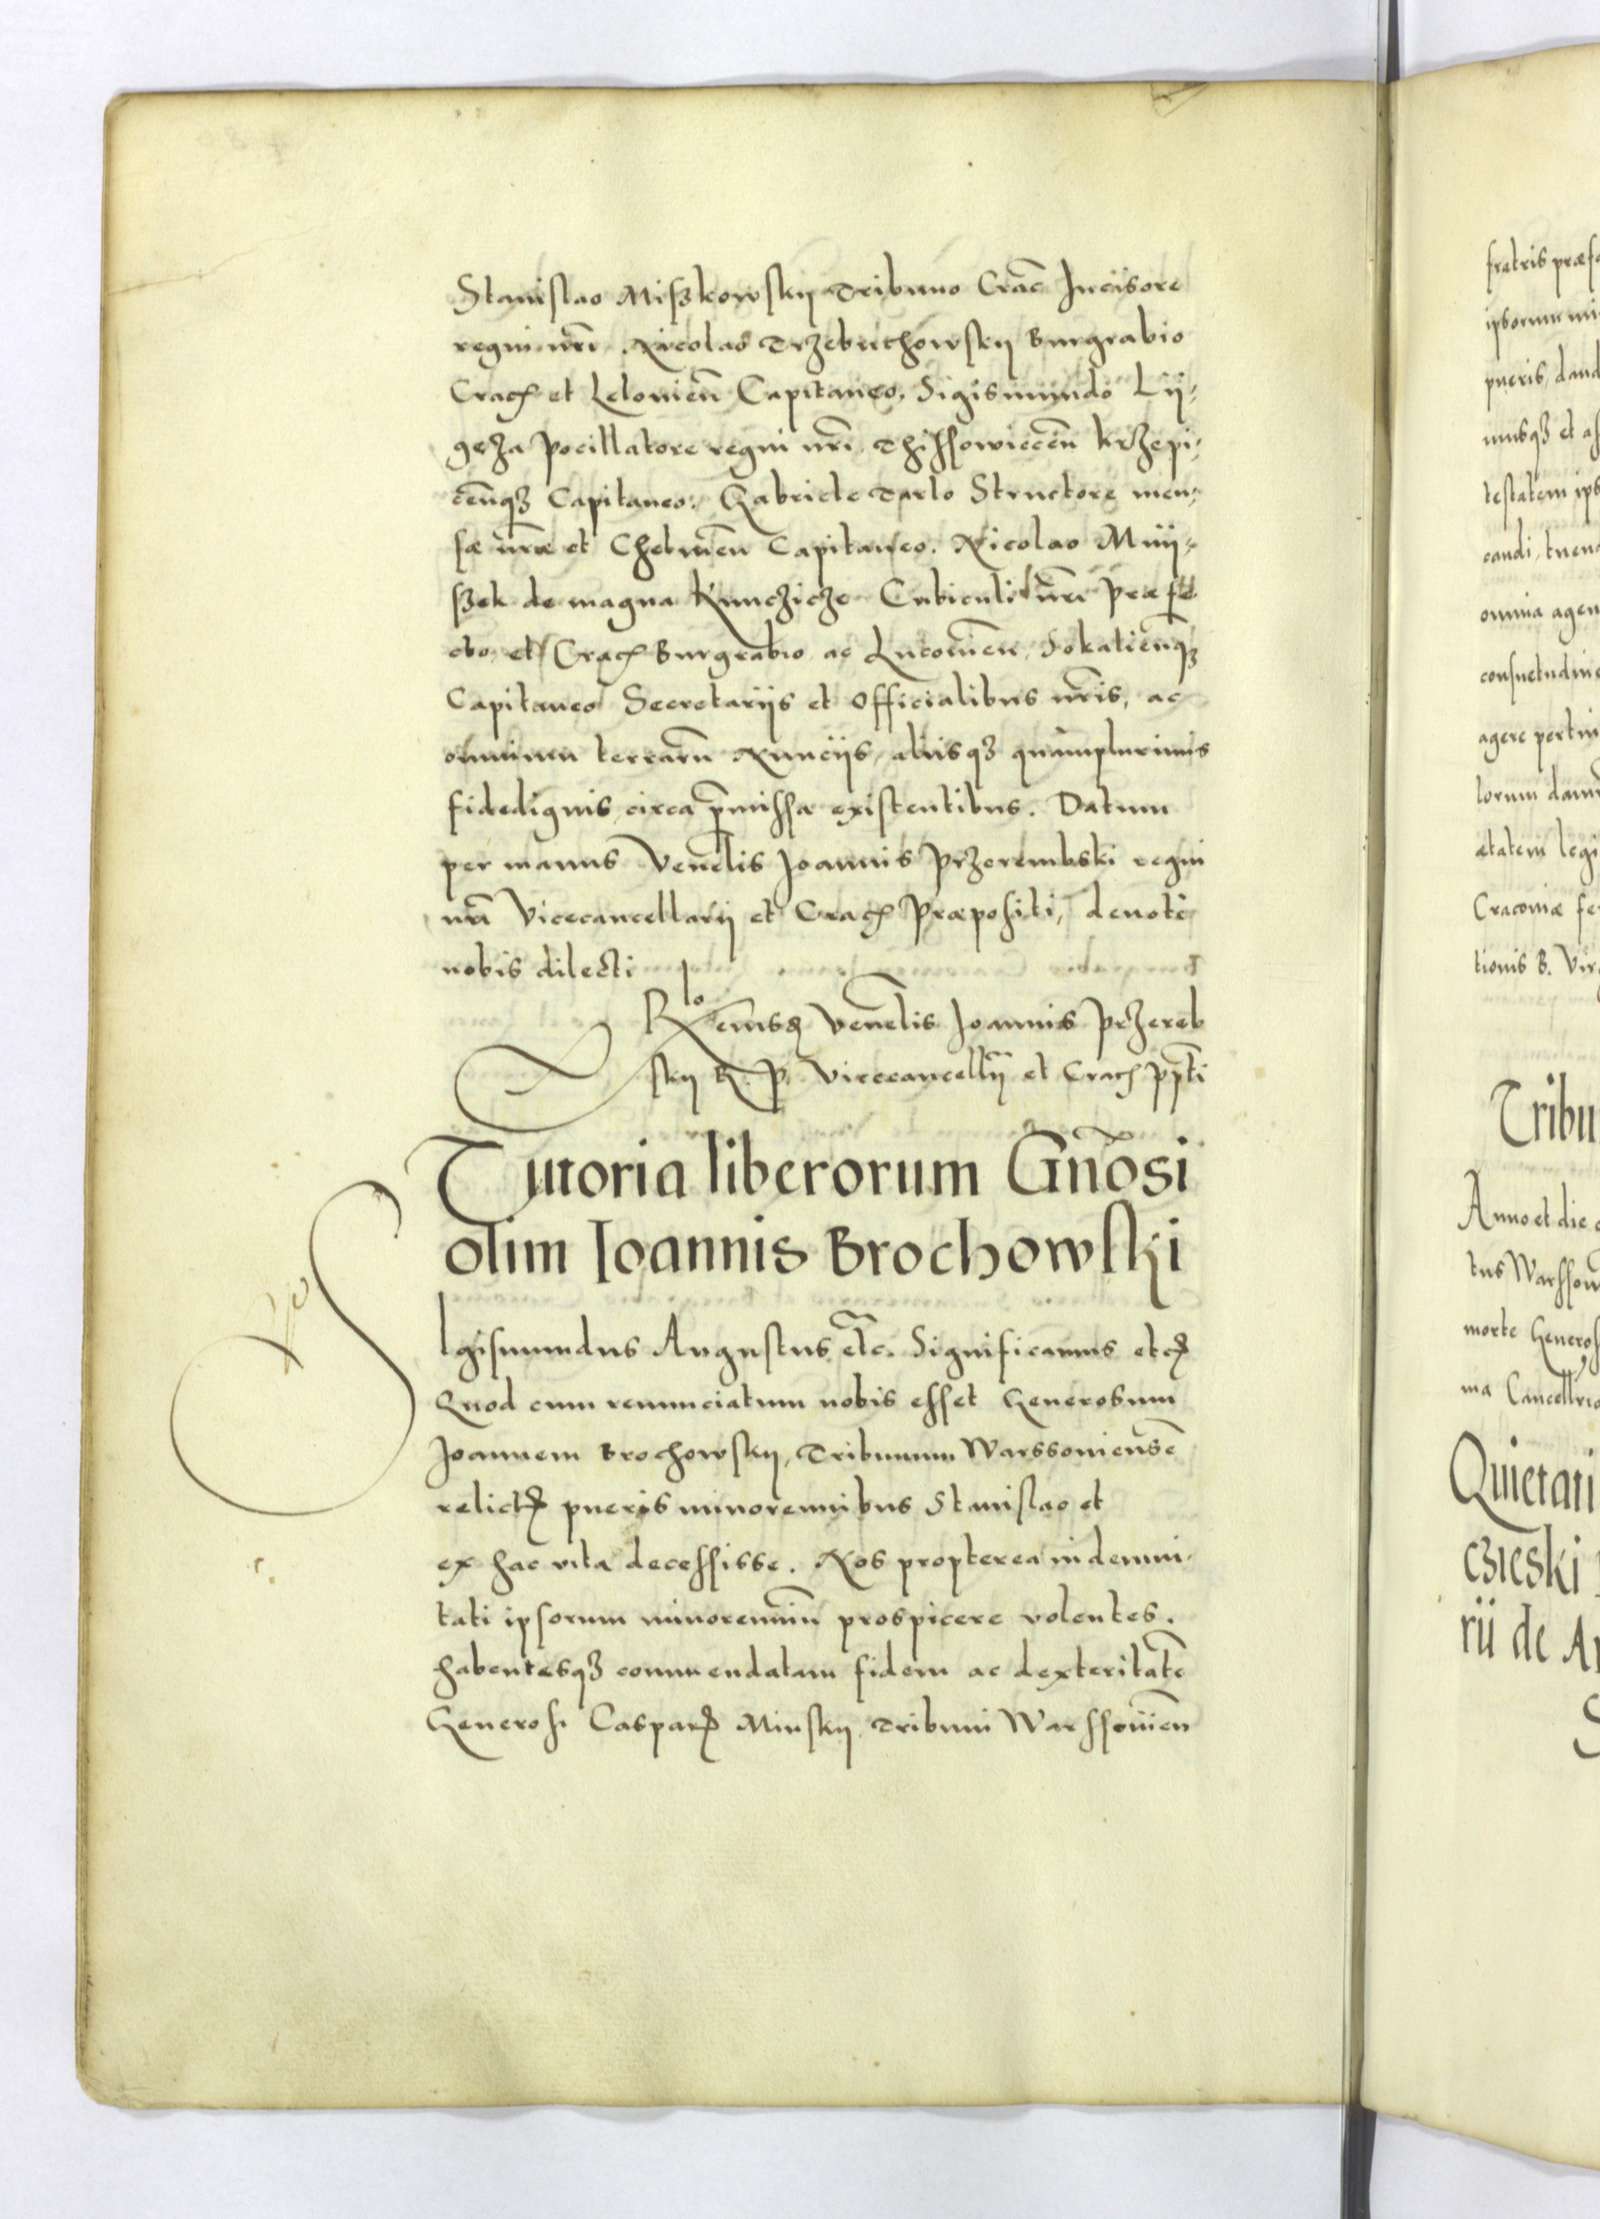 Stanislao Miſzkowſkij Tribuno Crac̄ Inciſore
regni nr̄i. Nicolao Trzebuchowſkij Burgrabio
Crac̄ et Lelovien̄ Capitaneo, Sigismundo Lij-
geza Pocillatore regni nr̄i Thiſſowiecen̄ Krzepi-
cen̄qȝ Capitaneo. Gabriele Tarlo Structore men-
ſæ nr̄æ et Chelmen̄ Capitaneo. Nicolao Mnij-
ſzek de magna Kunczicze Cubiculi nr̄i Præfe
cto, et Crac̄ Burgrabio ac Lucovien̄, Sokalien̄qȝ
Capitaneo Secretarijs et Officialibus nr̄is, ac
omnium terrarū Nuncijs, aliisqȝ quāmplurimis
fidedignis circa p̄miſſa exiſtentibus. Datum
per manus Venēlis Joannis Przerembski regni
nr̄i Vicecancellarij et Crac̄ Præpoſiti, deuote
nobis dilecti
Rlo eiusd̄ Venēlis Joannis Przereb
skij R. P. Vicecancellrij et Crac̄ Ppti
Tutoria liberorum Gn̄osi
olim Ioannis Brochowſki
Sigiſmundus Auguſtus etc. Significamus etc̄
Quod cum renunciatum nobis eſſet Generosum
Joannem Brochowſkij, Tribunum Warssoniensē
relictȝ pueris minorennibus Stanislao et
ex hac vita deceſſisse. Nos propterea indemni-
tati ipſorum minorenniū prospicere volentes.
habentesqȝ commendatam fidem ac dexteritatē
Generoſi Casparȝ Minſkij Tribuni Warſſovien̄
fratris præf
ipsorum mi
pueris, dand
musqȝ et aſ
teſtatem ips
candi, tuen
omnia agen
conſuetudine
agere pertin
lorum dam
ætatem legi
Cracoviæ fe
tionis B. Vir
Tribu
Anno et die
tus Warſſov
morte Generoſ
ma Cancellrio
Quietati
czieski
rii de A
S